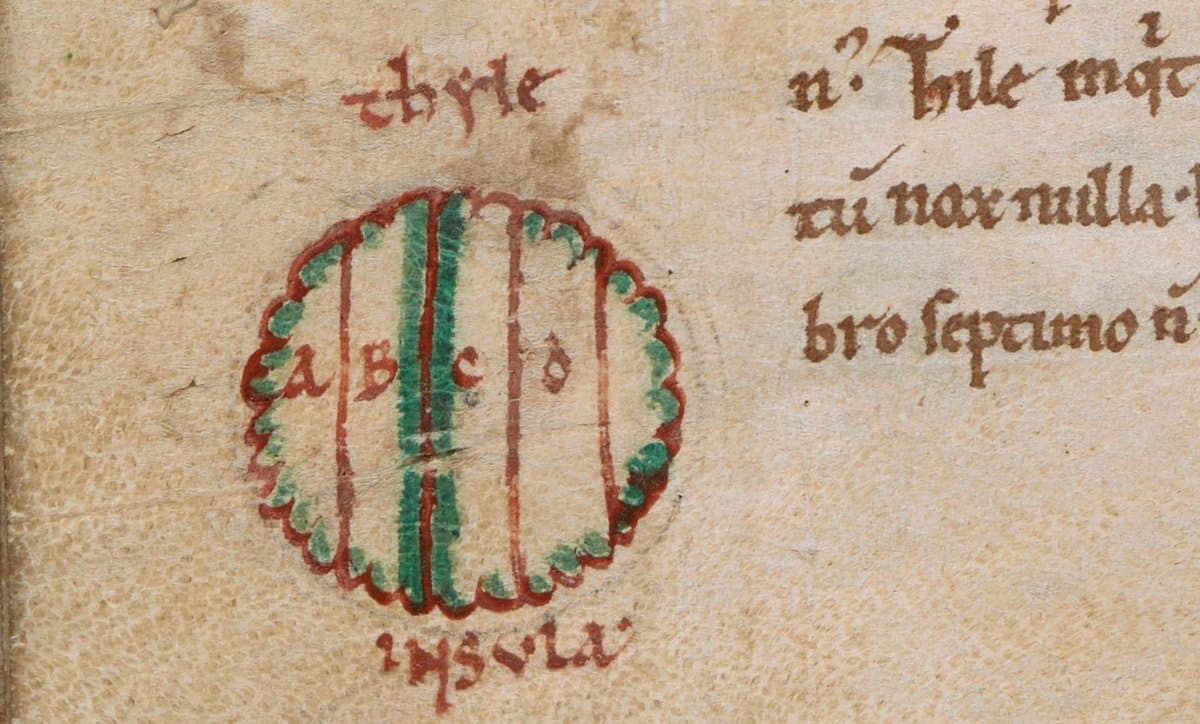 thyle
A B C D
insula·
n̄· Thile inqͥt
tū nox nulla·
bro septimo n̄